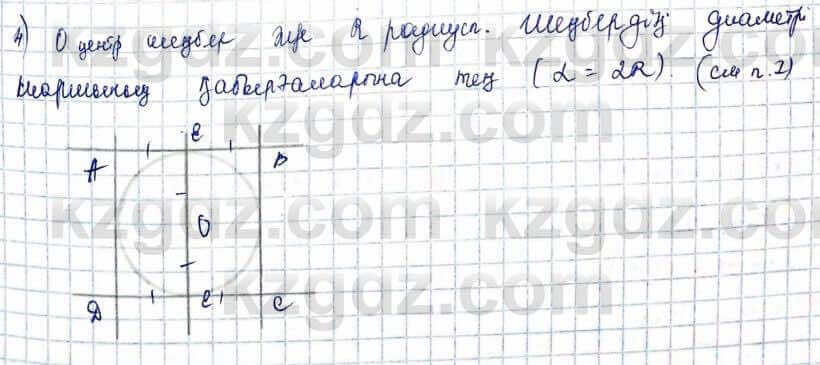 4) О центр шеңбер және R радиус. Шеңбердің диаметрі
қабырғаларына тең (d = 2R). (см п.2)
kzgdz.com kzgdz.com
E
A B
kzgdz.com kzgdz.com
O
kzgdz.com kzgdz.com
Д E' C